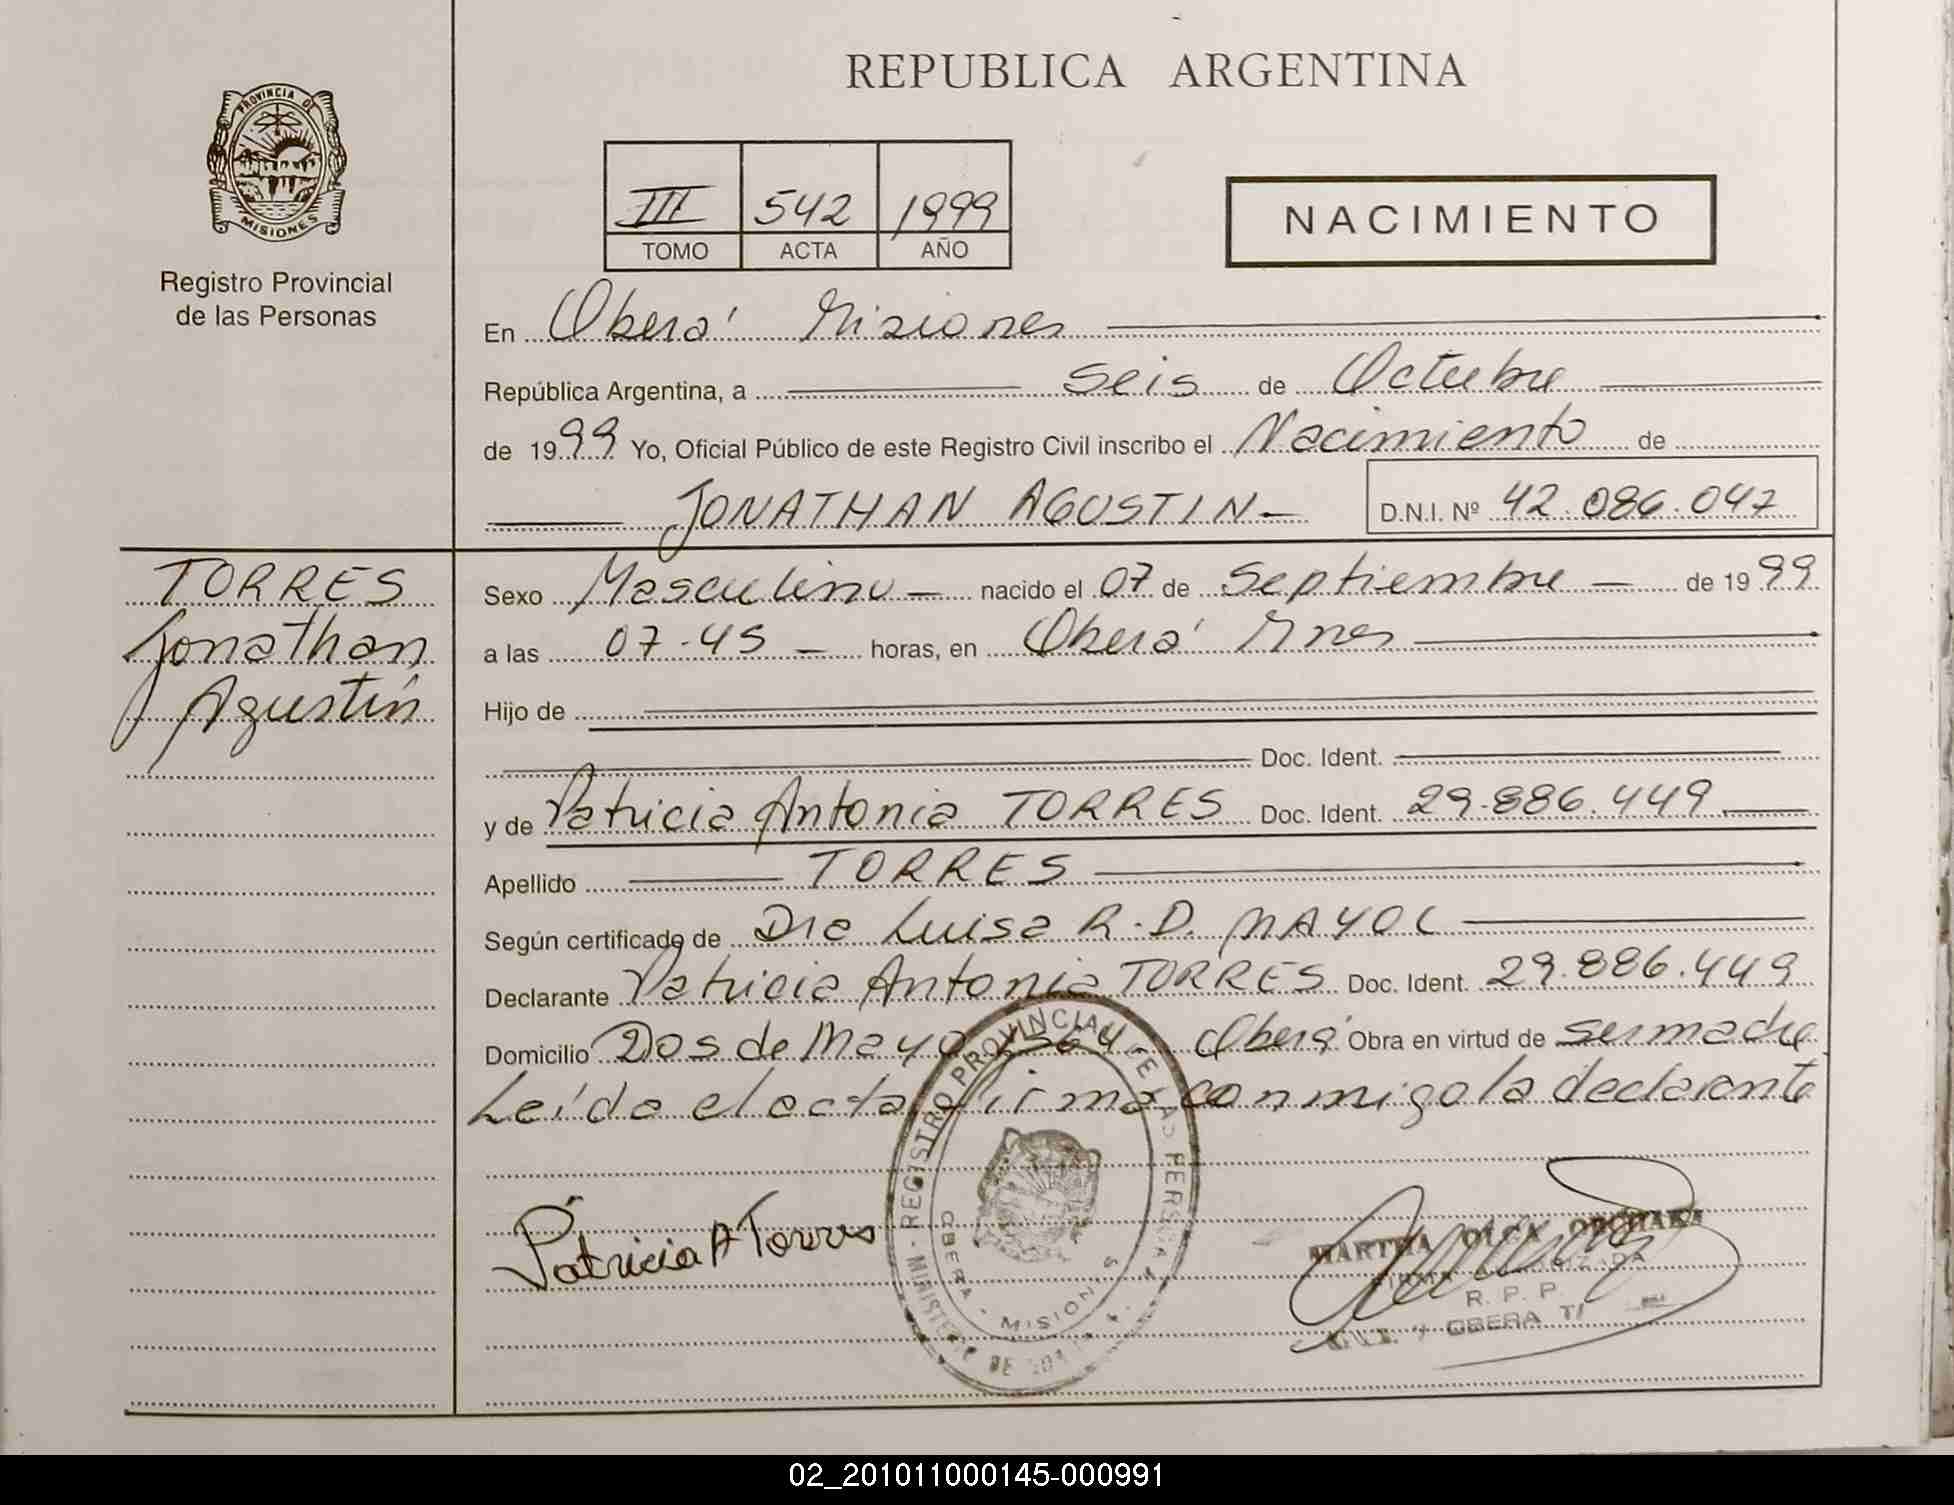 REPUBLICA ARGENTINA
PROVINCIA DE
MISIONES
Registro Provincial
de las Personas
III 542 1999
TOMO ACTA AÑO
NACIMIENTO
En Oberá Misiones
República Argentina, a Seis de Octubre
de 1999 Yo, Oficial Público de este Registro Civil inscribo el Nacimiento de
JONATHAN AGUSTIN D.N.I. Nº 42.086.047
TORRES
Jonathan
Agustín
Sexo Masculino nacido el 07 de Septiembre de 1999
a las 07.45 horas, en Oberá Mnes
Hijo de
Doc. Ident.
y de Patricia Antonia TORRES Doc. Ident. 29.886.449
Apellido TORRES
Según certificado de Dra Luisa R.D. MAYOL
Declarante Patricia Antonia TORRES Doc. Ident. 29.886.449
Domicilio Dos de Mayo Oberá Obra en virtud de ser madre
Leída el acta, firma conmigo la declarante
REGISTRO PROVINCIAL DE LAS PERSONAS
OBERA - MISIONES
MINISTERIO DE
Patricia A Torres
MARTHA OLGA
R. P. P.
OBERA
02_201011000145-000991